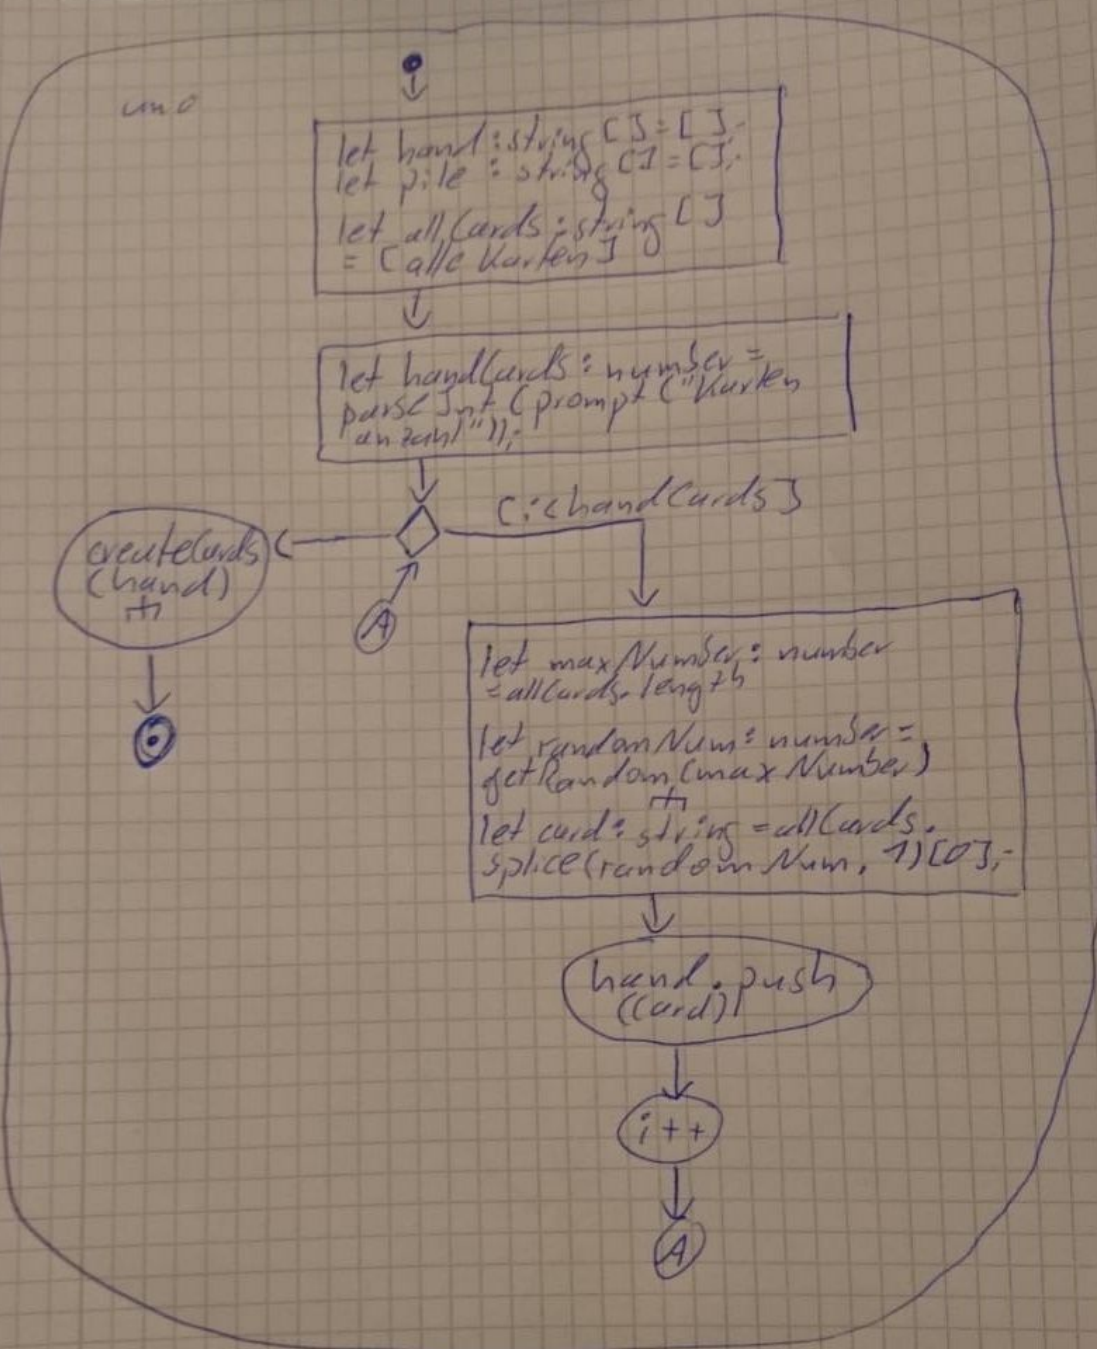 uno
let hand : string [ ] = [ ];
let pile : string [ ] = [ ];
let allCards : string [ ]
= [alle Karten]
let handCards : number =
parseInt (prompt ("Karten
anzahl"));
[i<handCards]
createCards
(hand)
A
let maxNumber : number
= allCards.length
let randomNum : number =
getRandom(maxNumber)
let card : string = allCards.
splice(randomNum, 1)[0];
hand.push
(card)
i++
A